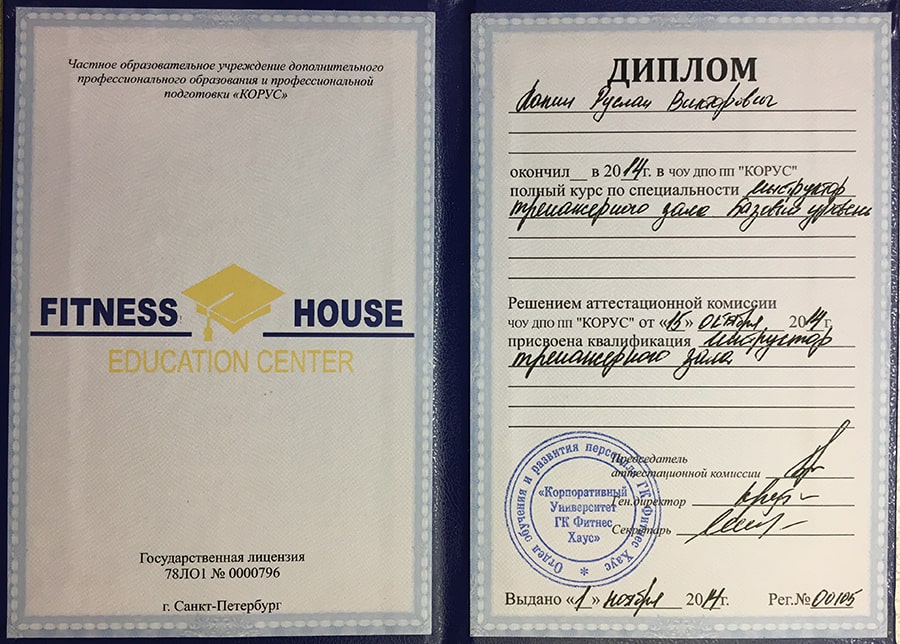 Частное образовательное учреждение дополнительного
профессионального образования и профессиональной
подготовки «КОРУС»
FITNESS HOUSE
EDUCATION CENTER
Государственная лицензия
78ЛО1 № 0000796
г. Санкт-Петербург
ДИПЛОМ
Руслан Викторович
окончил__ в 2014г. в ЧОУ ДПО ПП "КОРУС"
полный курс по специальности инструктор
тренажерного зала базовый уровень
Решением аттестационной комиссии
ЧОУ ДПО ПП "КОРУС" от «15» октября 2014г.
присвоена квалификация инструктор
тренажерного зала
Председатель
аттестационной комиссии
Ген.директор
Секретарь
Отдел обучения и развития персонала ГК Фитнес Хаус
«Корпоративный
Университет
ГК Фитнес
Хаус»
Выдано «1» ноября 2014г. Рег.№ 00105